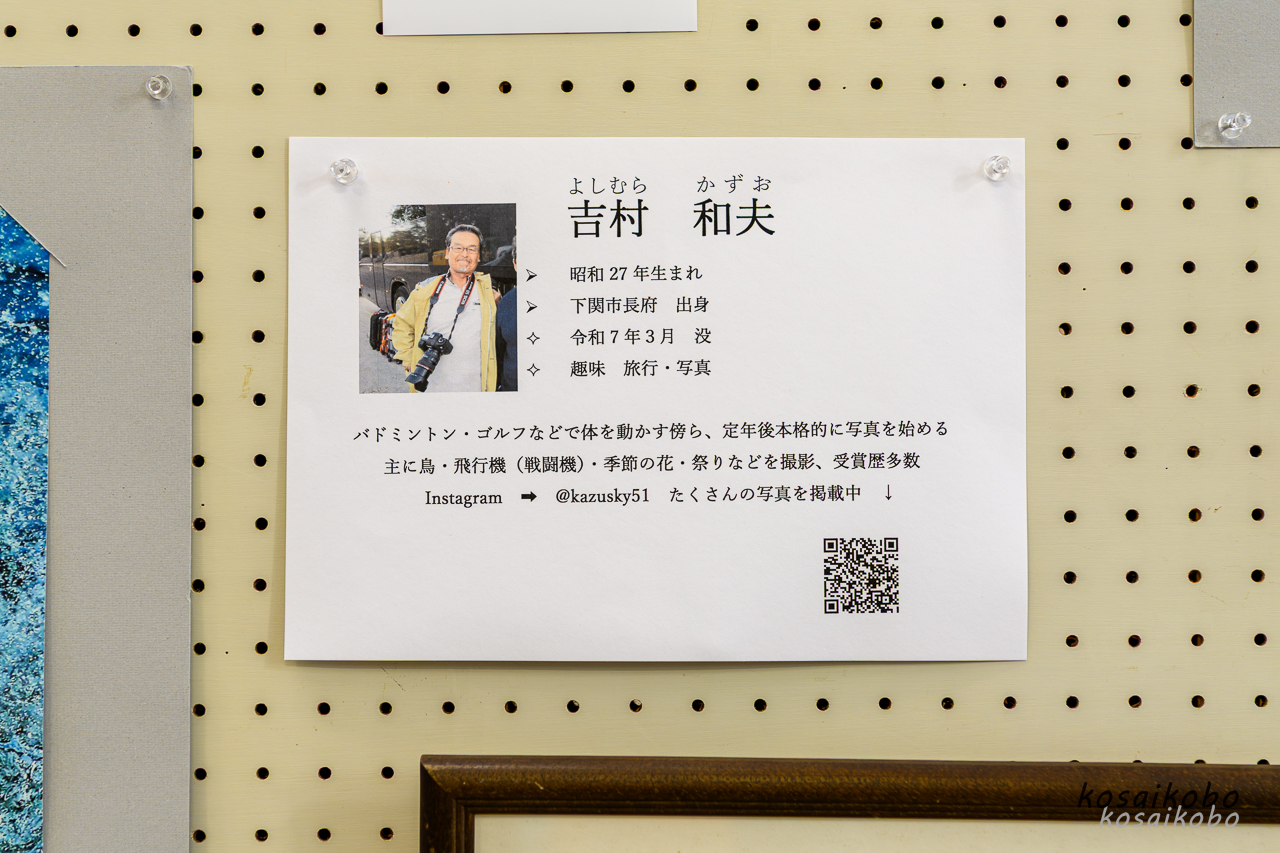 よしむら　かずお
吉村　和夫
➢ 昭和 27 年生まれ
➢ 下関市長府　出身
✧ 令和 7 年 3 月　没
✧ 趣味　旅行・写真
バドミントン・ゴルフなどで体を動かす傍ら、定年後本格的に写真を始める
主に鳥・飛行機（戦闘機）・季節の花・祭りなどを撮影、受賞歴多数
Instagram ➡ @kazusky51 たくさんの写真を掲載中 ↓
kosaikobo
kosaikobo